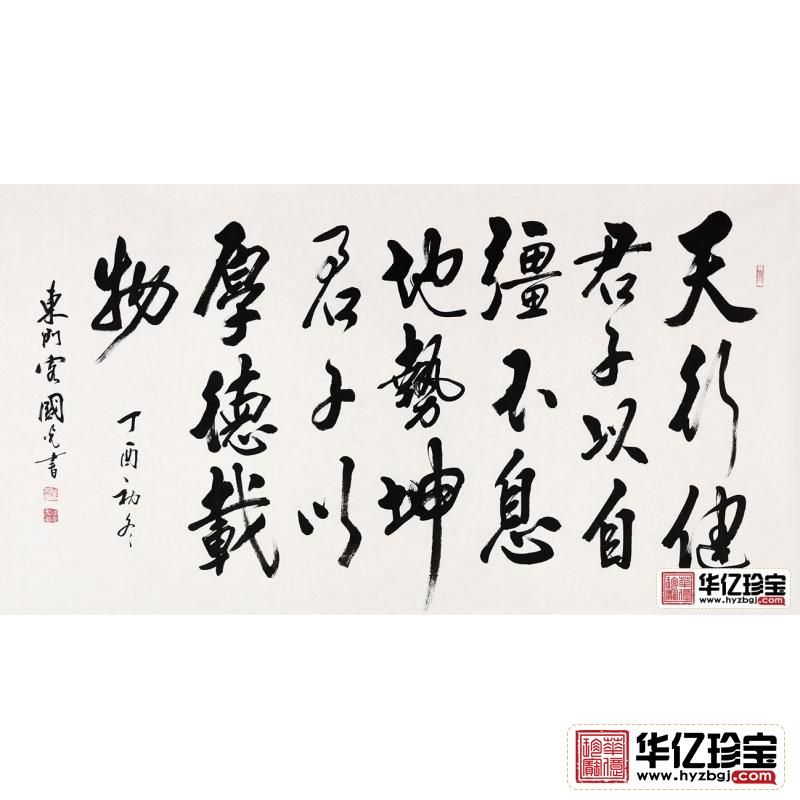 天行健
君子以自
彊不息
地勢坤
君子以
厚德載
物
丁酉初冬
東門國光書
華億珍寶
华亿珍宝
www.hyzbgj.com
華億珍寶
华亿珍宝
www.hyzbgj.com